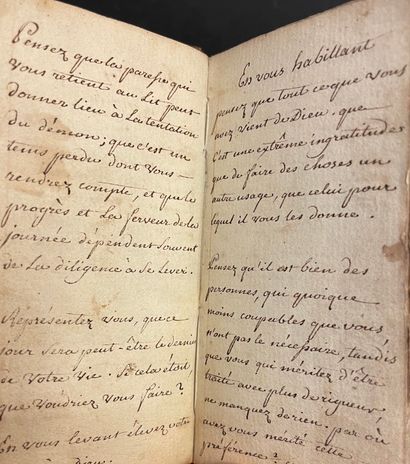 Pensez que la paresse qui
vous retient au lit peut
donner lieu à la tentation
du démon; que c'est un
tems perdu dont vous
rendrez compte, et que le
progrès et la ferveur de la
journée dépendent souvent
de la diligence à se lever.
Représentez vous, que ce
jour sera peut-être le dernier
de votre vie. Si cela étoit,
que voudriez vous faire?
En vous levant élevez votre
Dieu
En vous habillant
pensez que tout ce que vous
avez vient de Dieu, que
c'est une extrême ingratitude
que de faire des choses un
autre usage, que celui pour
lequel il vous les donne.
Pensez qu'il est bien des
personnes, qui quoique
moins coupables que vous,
n'ont pas le nécessaire, tandis
que vous qui méritez d'être
traité avec plus de rigueur,
ne manquez de rien. par où
avez vous mérité cette
préférence?